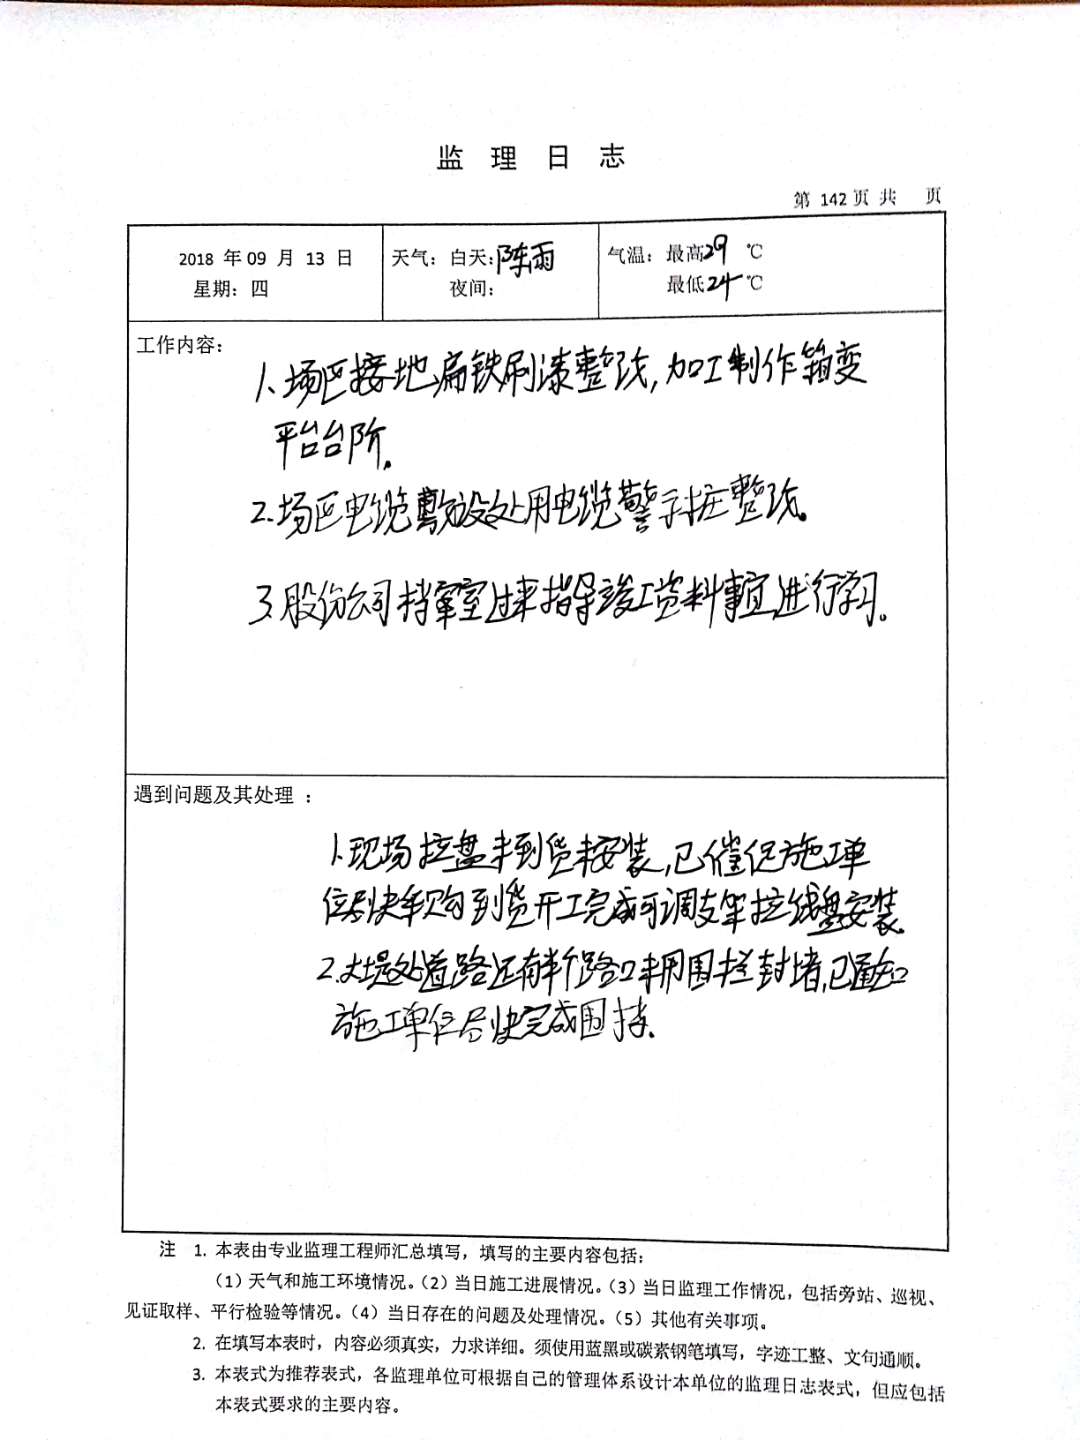 监 理 日 志
第 142 页 共 页
2018 年 09 月 13 日
星期：四
天气：白天：阵雨
夜间：
气温：最高29 ℃
最低24 ℃
工作内容：
1.场区接地扁铁刷漆整改,加工制作箱变
平台台阶.
2.场区电缆敷设处用电缆警示桩整改。
3.股份公司档案室过来指导竣工资料事宜进行学习。
遇到问题及其处理 ：
1.现场拉盘未到货未安装,已催促施工单
位尽快采购到货开工完成可调支架拉线盘安装.
2.大堤处道路还有半个路口未用围栏封堵,已通知
施工单位尽快完成围挡.
注 1. 本表由专业监理工程师汇总填写，填写的主要内容包括：
（1）天气和施工环境情况。（2）当日施工进展情况。（3）当日监理工作情况，包括旁站、巡视、
见证取样、平行检验等情况。（4）当日存在的问题及处理情况。（5）其他有关事项。
2. 在填写本表时，内容必须真实，力求详细。须使用蓝黑或碳素钢笔填写，字迹工整、文句通顺。
3. 本表式为推荐表式，各监理单位可根据自己的管理体系设计本单位的监理日志表式，但应包括
本表式要求的主要内容。